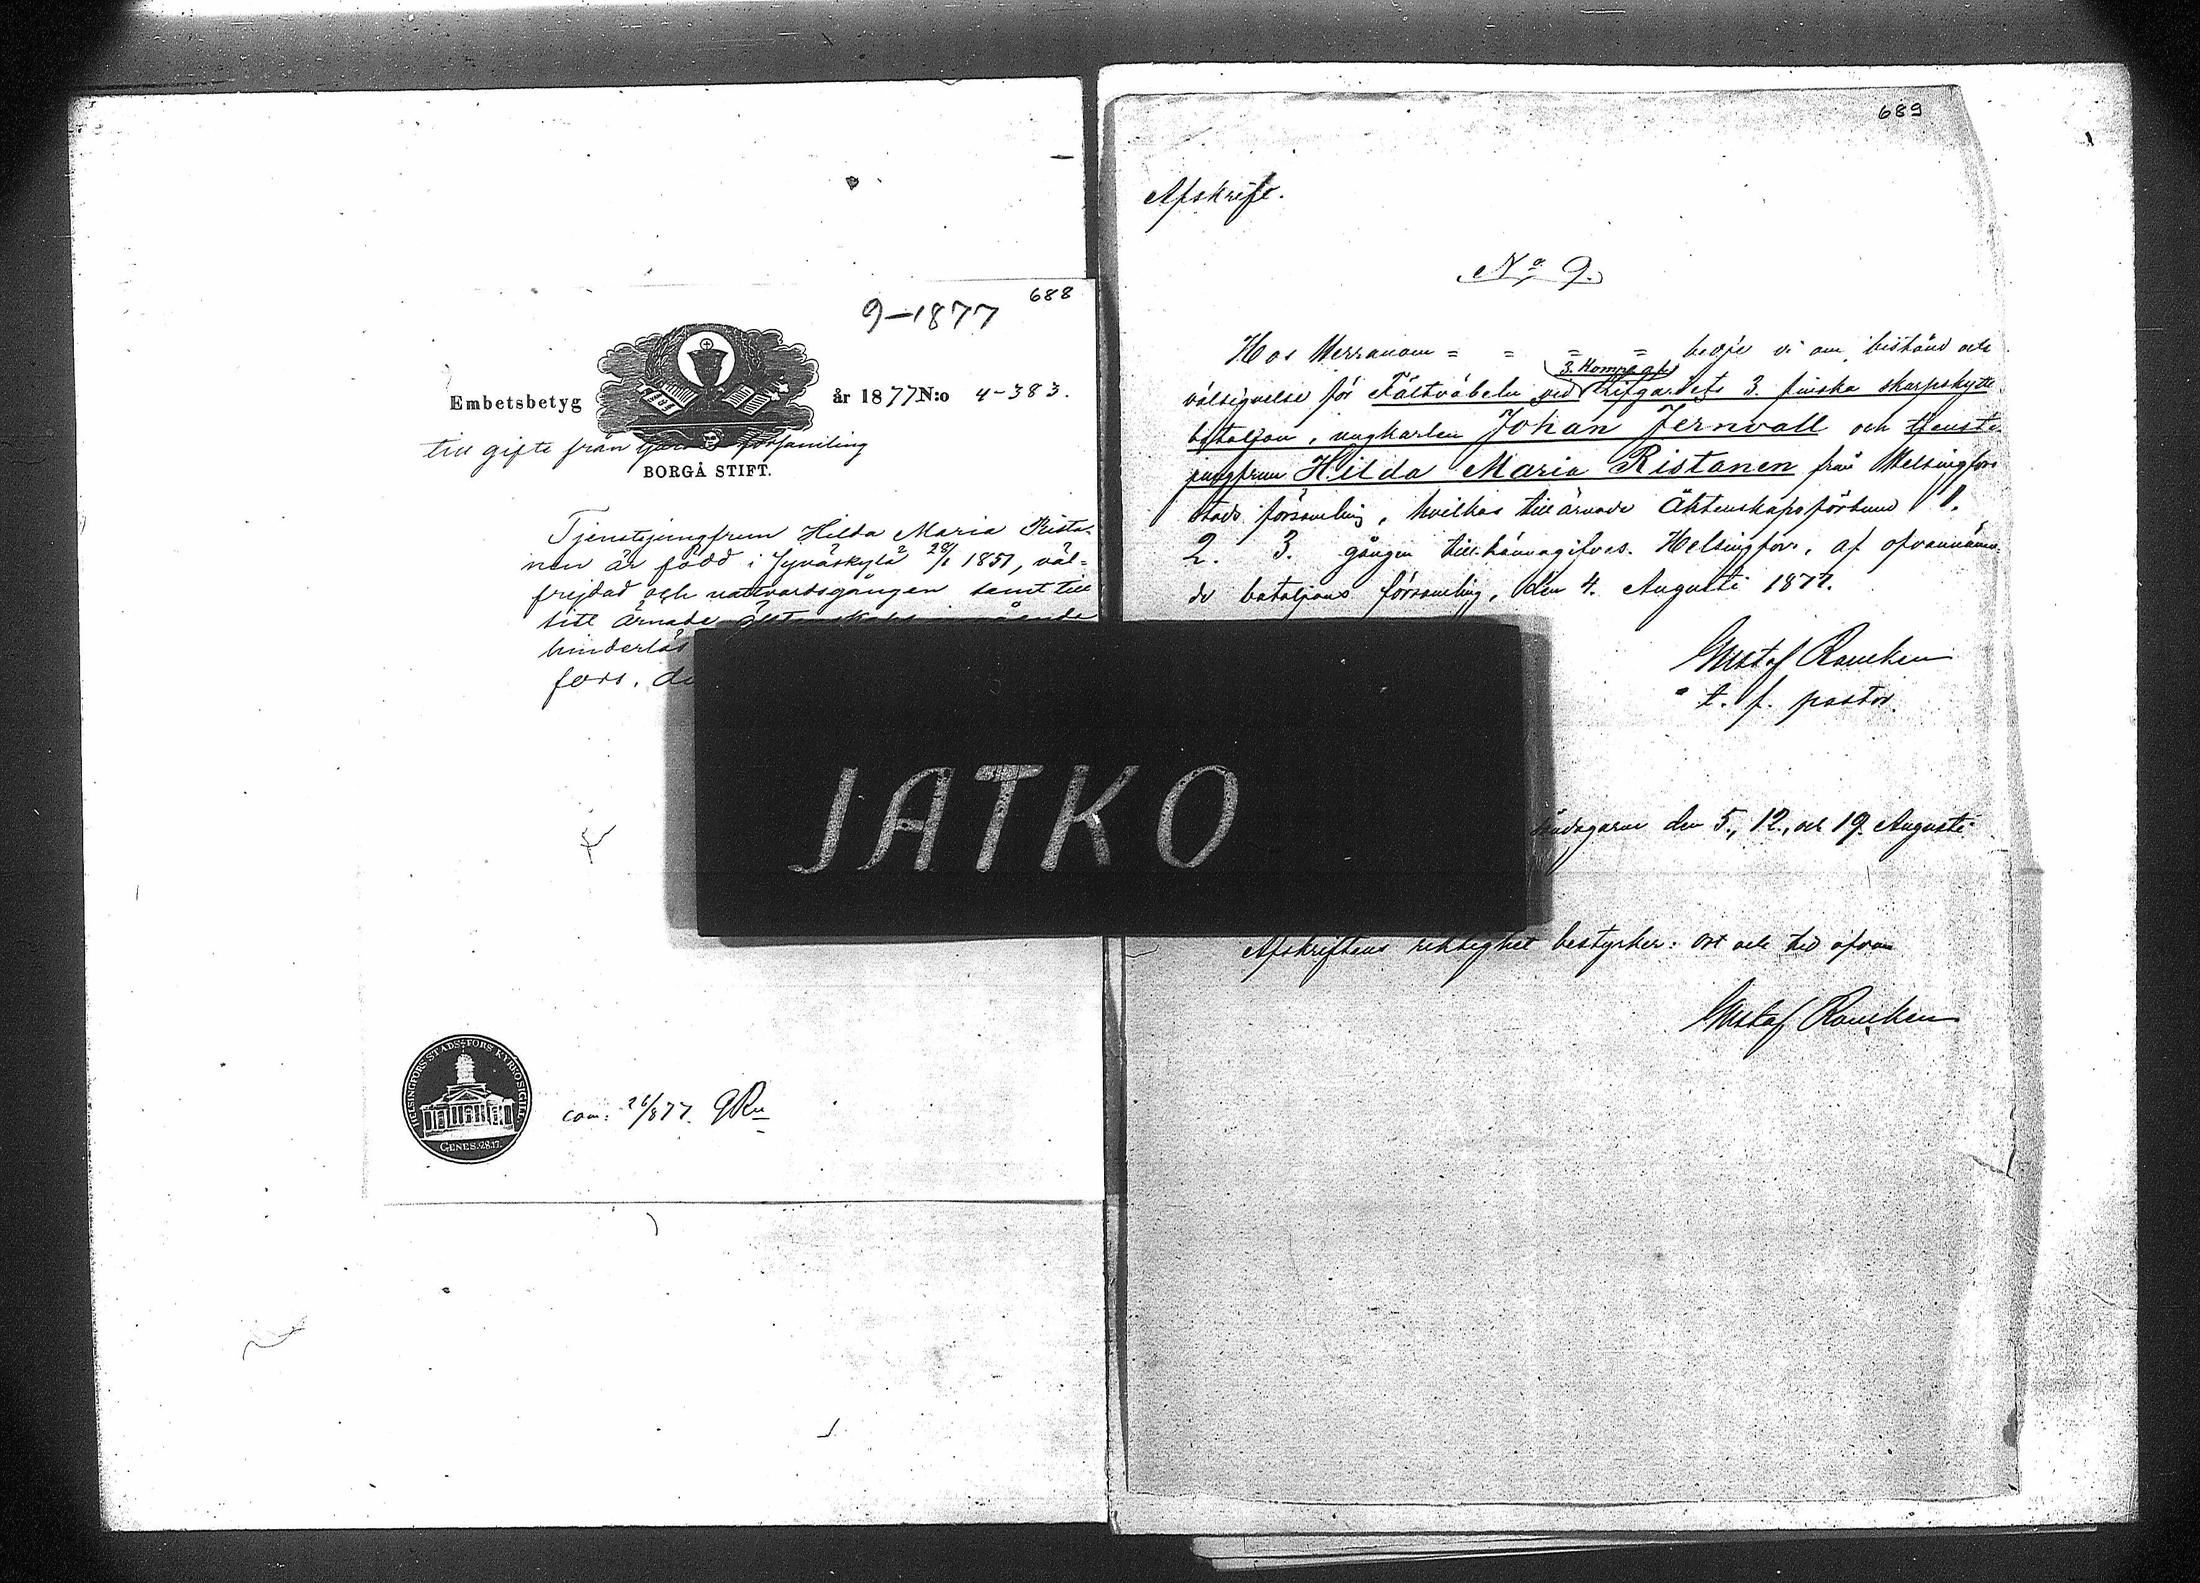 688
9-1877
Embetsbetyg år 1877 N:o 4-383.
till gifte från församling
BORGÅ STIFT.
Tjenstejungfrun Hilda Maria Rista-
nen är född i Jyväskylä 28/1 1851, väl-
frejdad och nattvardsgången samt till
sitt ärnade äktenskaps
hinderlös
fors, de
HELSINGFORS STADSFÖRS KYRKOSIGILL
GENES. 28.17.
cop: 26/8 77. GRn
JATKO
689
Afskrift.
No 9.
Hos Herranom = = = = bedje vi om bistånd och
3. Kompagt
välsignelse för Fältväbeln vid Lifgardets 3. finska skarpskytte
bataljon, ungkarlen Johan Jernvall och tjenste
jungfrun Hilda Maria Ristanen från Helsingfors
stads församling, hvilkas tillärnade äktenskapsförbund 1.
2. 3. gången tillkännagifves. Helsingfors, af ofvannämn-
de bataljons församling, den 4. Augusti 1877.
Gustaf Rancken
t. f. pastor.
söndagarne den 5, 12, och 19. Augusti
Afskriftens riktighet bestyrker: ort och tid ofvan
Gustaf Rancken